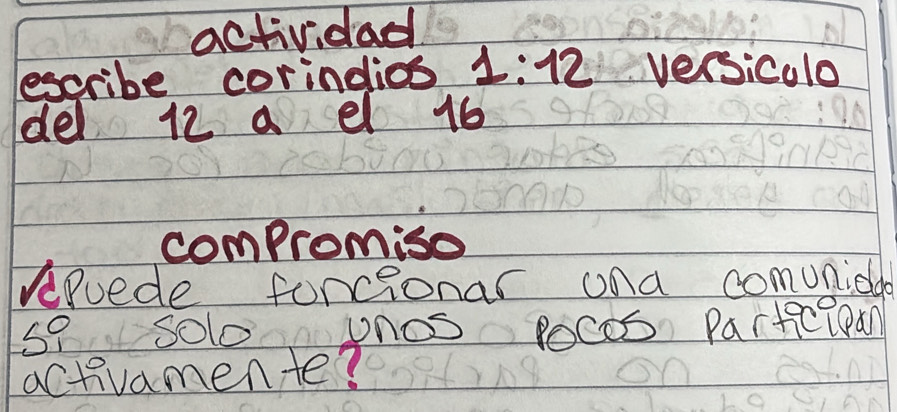 actividad
escribe corindios 1:12 versiculo
del 12 a el 16
compromiso
✓¿Puede funcionar una comunidad
si solo unos pocos participan
activamente?